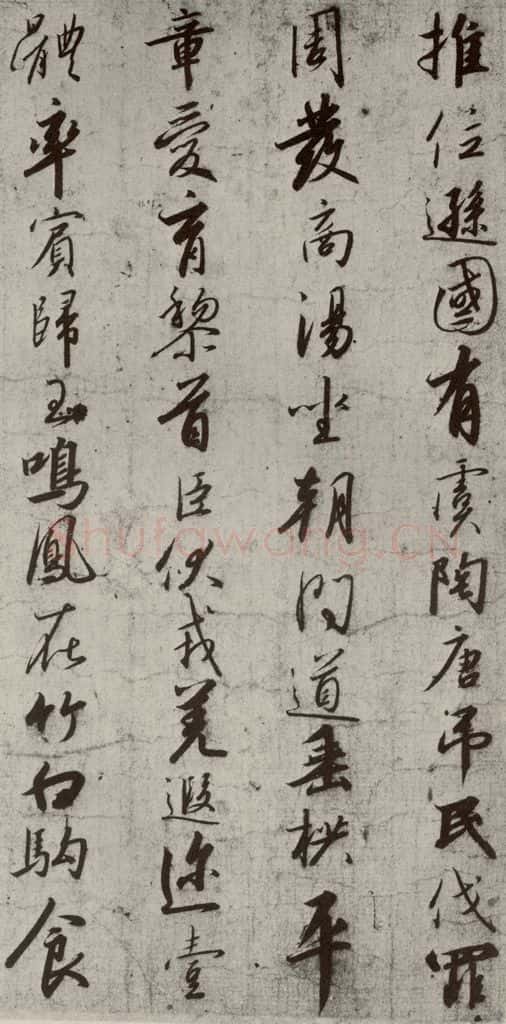 推位遜國有虞陶唐吊民伐罪
周發商湯坐朝問道垂拱平
章愛育黎首臣伏戎羌遐迩壹
體率賓歸王鳴鳳在竹白駒食
Shufawang.CN